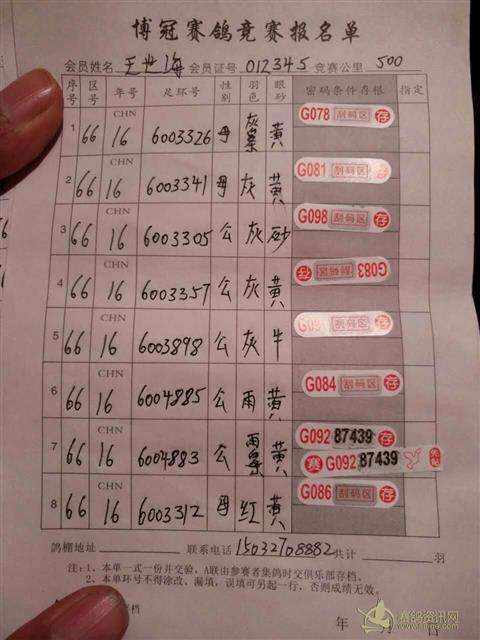 博冠赛鸽竞赛报名单
会员姓名 王世海 会员证号 012345 竞赛公里 500
序号 区号 年号 足环号 性别 羽色 眼砂 密码条件存根 指定
1 66 CHN 16 6003326 母 灰 黄 G078 刮码区 存
2 66 CHN 16 6003341 母 灰 黄 G081 刮码区 存
3 66 CHN 16 6003305 公 灰 砂 G098 刮码区 存
4 66 CHN 16 6003357 公 灰 黄 G083 刮码区 存
5 66 CHN 16 6003898 公 灰 牛 刮码区 存
6 66 CHN 16 6004885 公 雨 黄 G084 刮码区 存
7 66 CHN 16 6004883 公 雨 黄 G092 87439 存
赛 G092 87439
8 66 CHN 16 6003312 母 红 黄 G086 刮码区 存
鸽棚地址 联系电话 15032708882 共计 羽
注:1、本单一式一份并交验,A联由参赛者集鸽时交俱乐部存档。
2、本单环号不得涂改、漏填,误填可另起一行,否则成绩无效。
存档
年 月 日
赛鸽资讯网